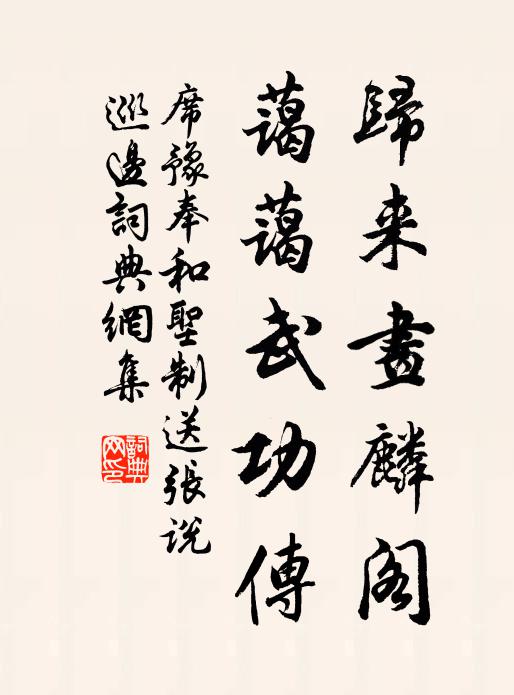 歸来畫麟阁
藹藹武功傳
席豫奉和聖制送張説
巡邊詞典網集
詞典网印